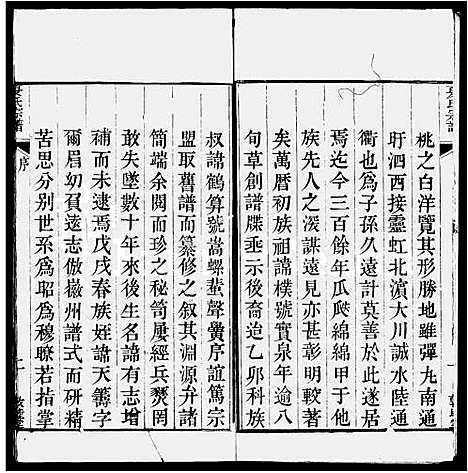 桃之白洋覽其形勝地雖彈丸南通
盱泗西接靈虹北濵大川誠水陸通
衢也爲子孫久遠計莫善於此遂居
焉迄今三百餘年瓜瓞綿綿甲于他
族先人之濬識遠見亦甚彰明較著
矣萬曆初族祖諱樸號實泉年逾八
旬草創譜牒垂示後裔迨乙卯科族
叔諱鶴算號嵩螺蜚聲黌序誼篤宗
盟取舊譜而纂修之叙其淵源弁諸
簡端余閱而珍之秘笥屢經兵燹罔
敢失墜數十年來後生名諱有志增
補而未逮焉戊戌春族姪諱天籌字
爾眉幼負遂志倣徽州譜式而硏精
苦思分别世系爲昭爲穆瞭若指掌
氏宗譜
序